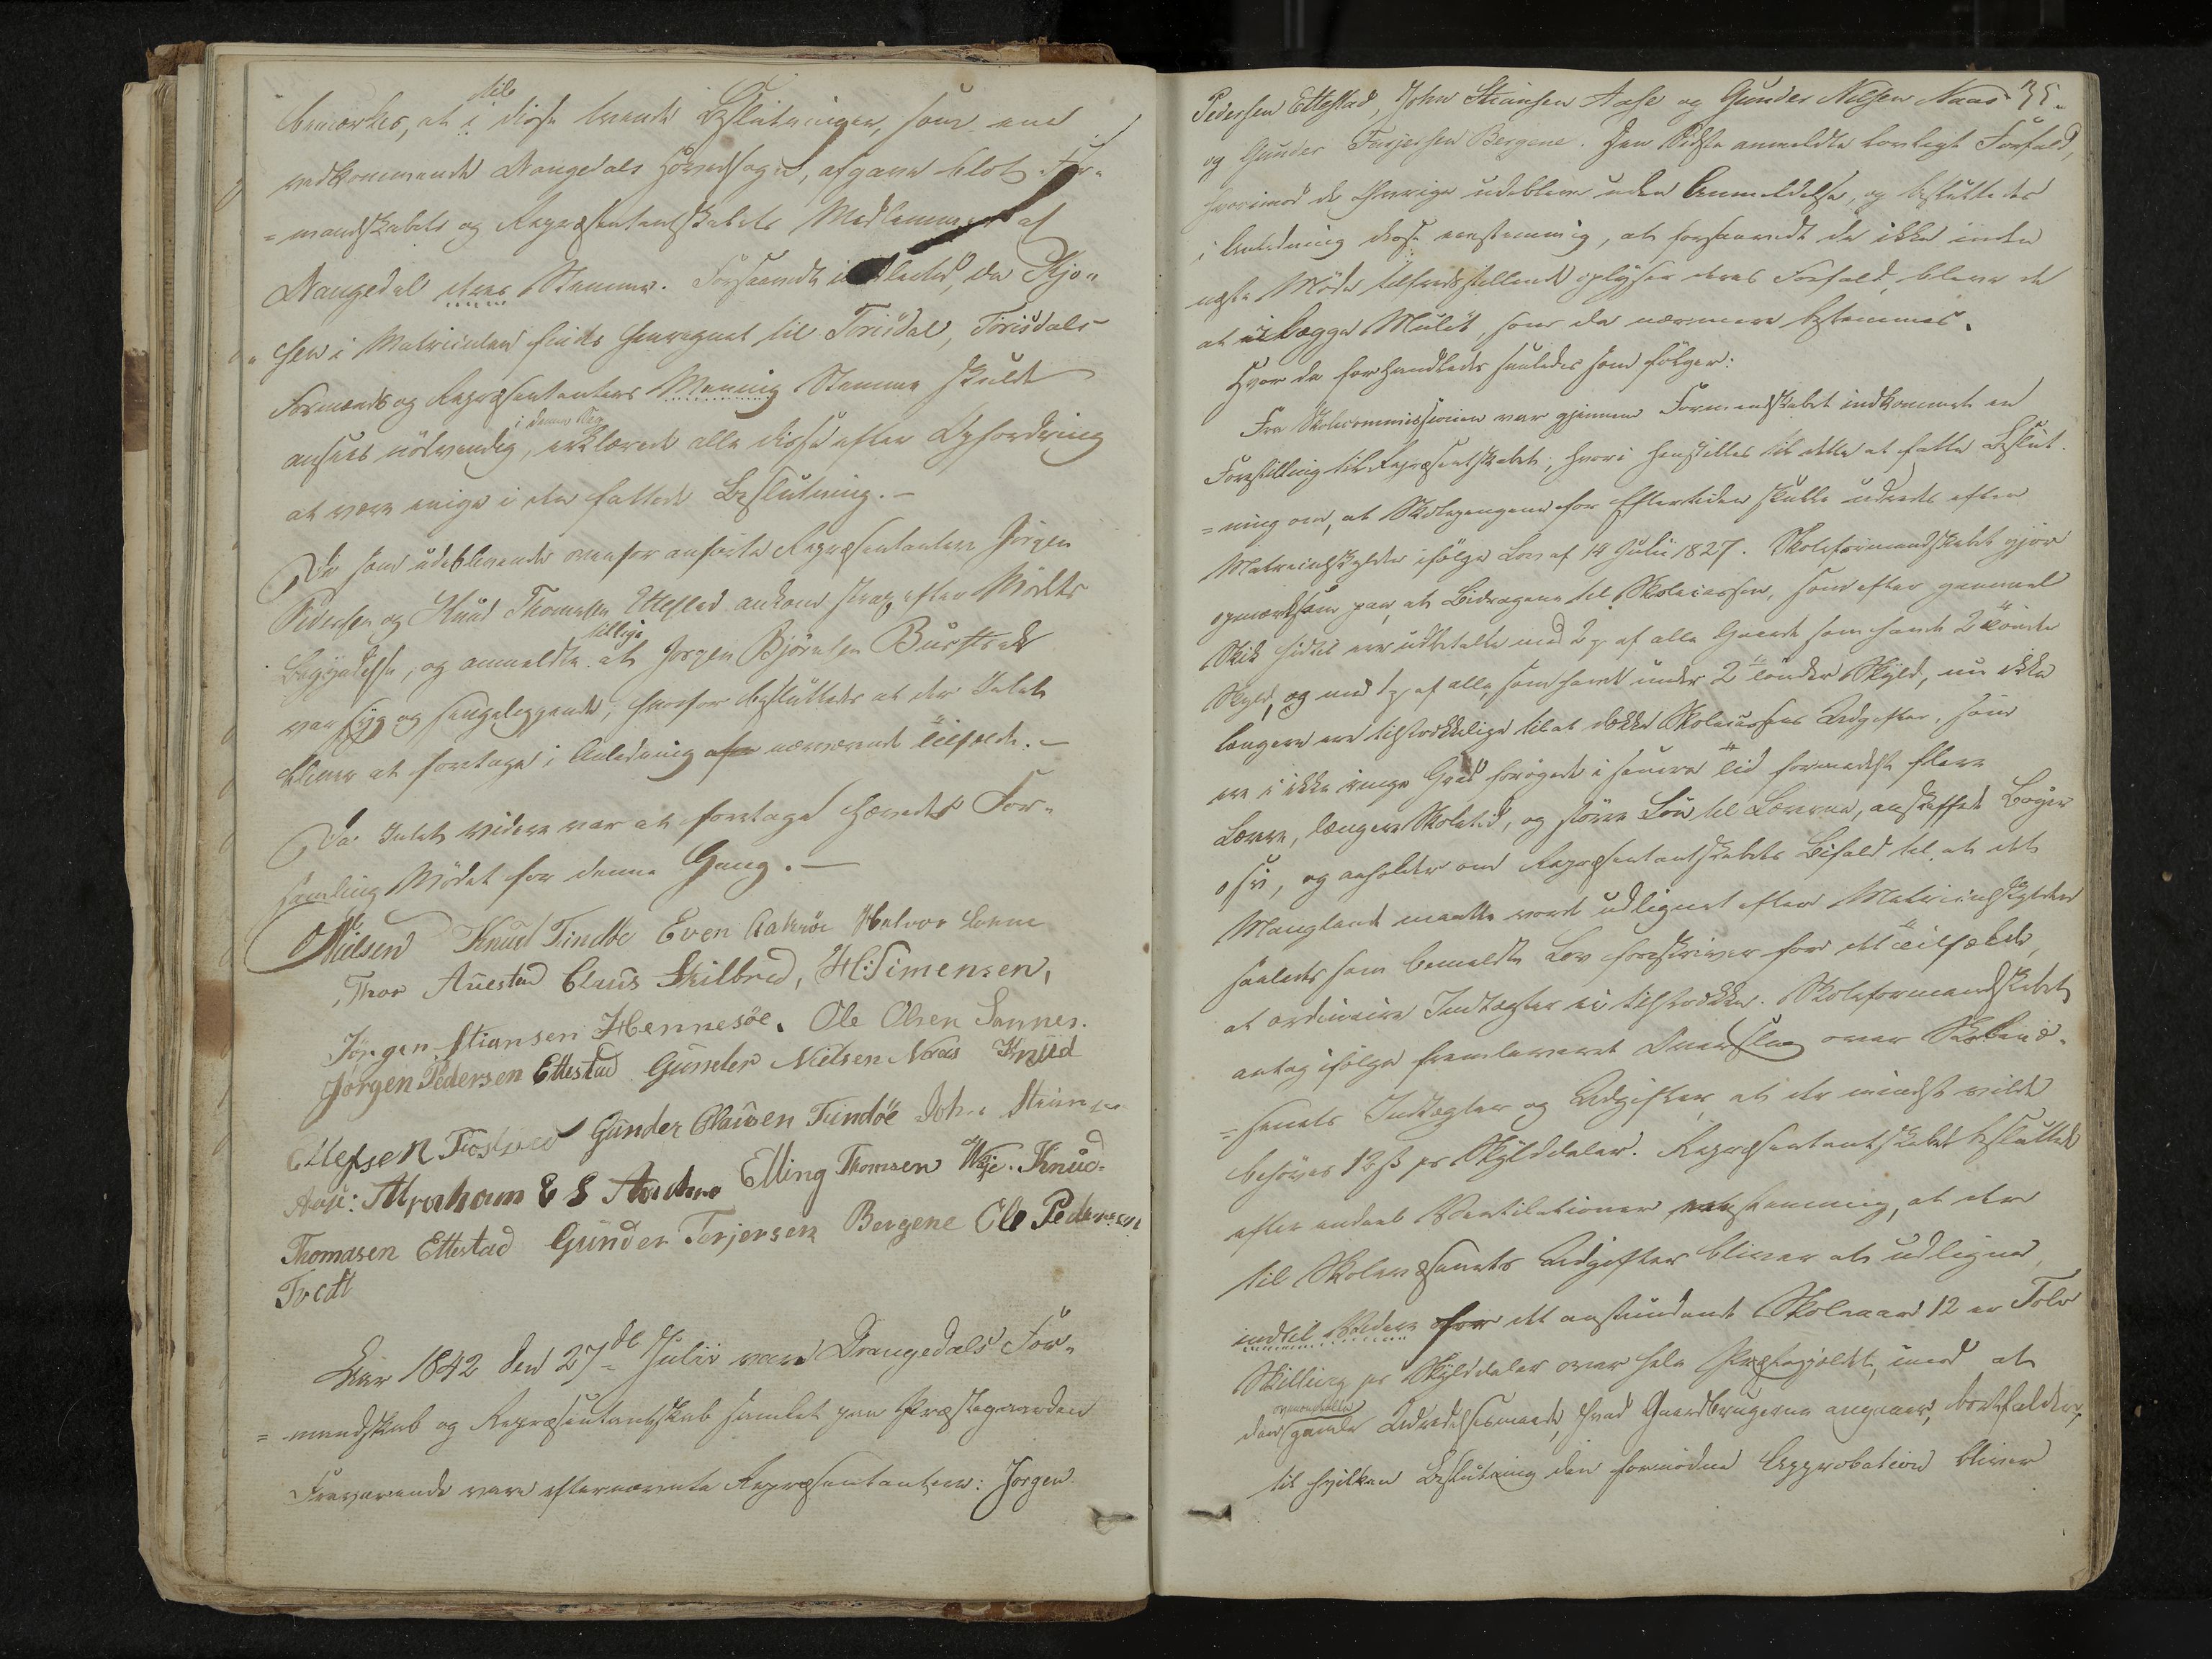 til
bemærkes, at i disse trende Beslutninger, som ene
vedkommende Drangedals Hovedsogn, afgave blot For-
=mandskabets og Repræsentantskabets Medlemmer af
Drangedal deres Stemmer. Forsaavidt, da Kjo-
sen i Matriculen findes henregnet til Törisdal, Törisdals
Formænds og Repræsentanters Mening Stemme skulde
i denne Sag
ansees nödvendig, erklærede alle disse efter Opfordring
at være enige i den fattede Beslutning.-
De som udeblevende ovenfor anførte Repræsentantere Jörgen
Pedersen og Knud Thomassen Ettestad ankom strax efter Mödets
tillige
Begyndelse, og anmeldte at Jørgen Björnsen
var syg og sengeliggende, hvorfor besluttedes at der Intet
bliver at foretage i Anledning af nærværende Tilfælde.-
Da Intet videre var at foretage hævedes For-
samling Mödet for denne Gang.-
Nielsen Knud Tindöe Even Halvor
Thor Auestad Claus Skilbred, H: Simensen,
Jörgen Stiansen Hennesöe. Ole Olsen Sannes.
Jörgen Pedersen Ettestad Gunder Nielsen Naas Knud
Ellefsen Gunder Clausen Tindöe John Stians
Aase: Abraham Elling Thomsen Knud
Thomasen Ettestad Gunder Terjersen Bergene Ole Pedersen
Tvedt
Aar 1842 den 27de Julii var Drangedals For-
=mandskab og Repræsentantskab samlet paa Præstegaarden
Fraværende vare efternævnte Repræsentantere: Jørgen
35.
Pedersen Ettestad, John Stiansen Aase og Gunder Nilsen Naas
og Gunder Terjersen Bergene. Den Sidste anmeldte lovligt Forfald,
hvorimod de Øvrige udebleve uden Anmeldelse, og besluttedes
i Anledning disse eenstemmig, at forsaavidt de ikke inden
næste Möde tilfredsstillende oplyser deres Forfald, bleve de
at ilægge Mulct, som da nærmere bestemmes.
Hvor da forhandledes saaledes som fölger:
Fra Skolecommissionen var gjennem Formandskabet indkommet en
Forestilling til Repræsentskabet, hvori henstilles til dette at fatte Beslut-
=ning om, at Skolepengene for Eftertiden skulle udredes efter
Matriculskylden ifölge Lov af 14 Julii 1827. Skoleformandskabet gjör
opmærksom paa, at Bidragene til Skolecassen, som efter gammel
Skik hidtil ere udbetalte med 2 af alle Gaarde som havde 2 Tönder
Skyld, og med 1 af alle, som havde under 2 Tönder Skyld, nu ikke
længere ere tilstrækkelige til at dække Skolecassens Udgifter, som
ere i ikke ringe Grad forögede i senere Tid formedelst flere
Lærere, længere Skoletid, og större Lön til Lærerne, anskaffede Böger
osv, og anholder om Repræsentantskabets Bifald til at det
Manglende maatte vorde udlignet efter Matriculskylden
saaledes som bemeldte Lov foreskriver for det Tilfælde,
at ordinaire Indtægter ei tilstrække. Skoleformandskabet
antog ifölge fremlæveret Overslag over Skolevæ-
=senets Indtægter og Udgifter, at der mindst vilde
behöves 12 ß pr Skylddaler. Repræsentantskabet besluttede
efter endeel Ventilationer eenstemmig, at der
til Skolevæsenets Udgifter bliver at udligne,
indtil Videre for det anstundende Skoleaar 12 er Tolv
Skilling pr Skylddaler over hele Præstegjeldet, imod at
ovenomhandlede
den gamle Udredelsesmaade, hvad Gaardbrugerne angaaer, bortfalder,
til hvilken Beslutning den fornödne Approbation bliver